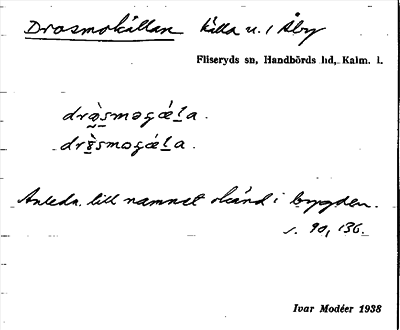 Drosmokällan källa u. 1 Åby
Fliseryds sn, Handbörds hd, Kalm. l.
Anledn. till namnet okänd i bygden.
s. 90, 136.
Ivar Modéer 1938